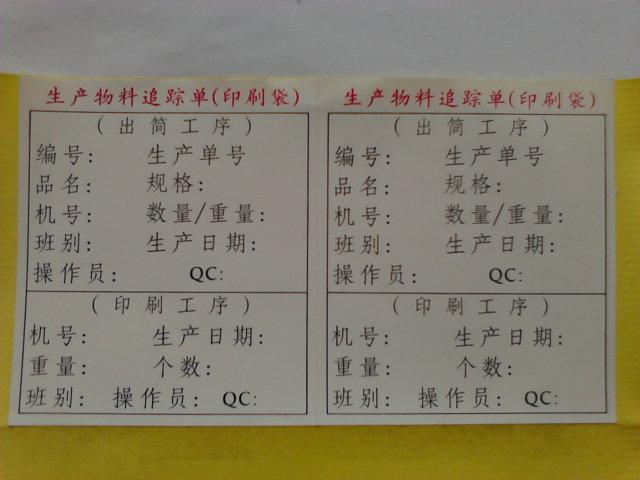 生产物料追踪单(印刷袋)
(出简工序)
编号: 生产单号
品名: 规格:
机号: 数量/重量:
班别: 生产日期:
操作员: QC:
(印刷工序)
机号: 生产日期:
重量: 个数:
班别: 操作员: QC:
生产物料追踪单(印刷袋)
(出简工序)
编号: 生产单号
品名: 规格:
机号: 数量/重量:
班别: 生产日期:
操作员: QC:
(印刷工序)
机号: 生产日期:
重量: 个数:
班别: 操作员: QC: